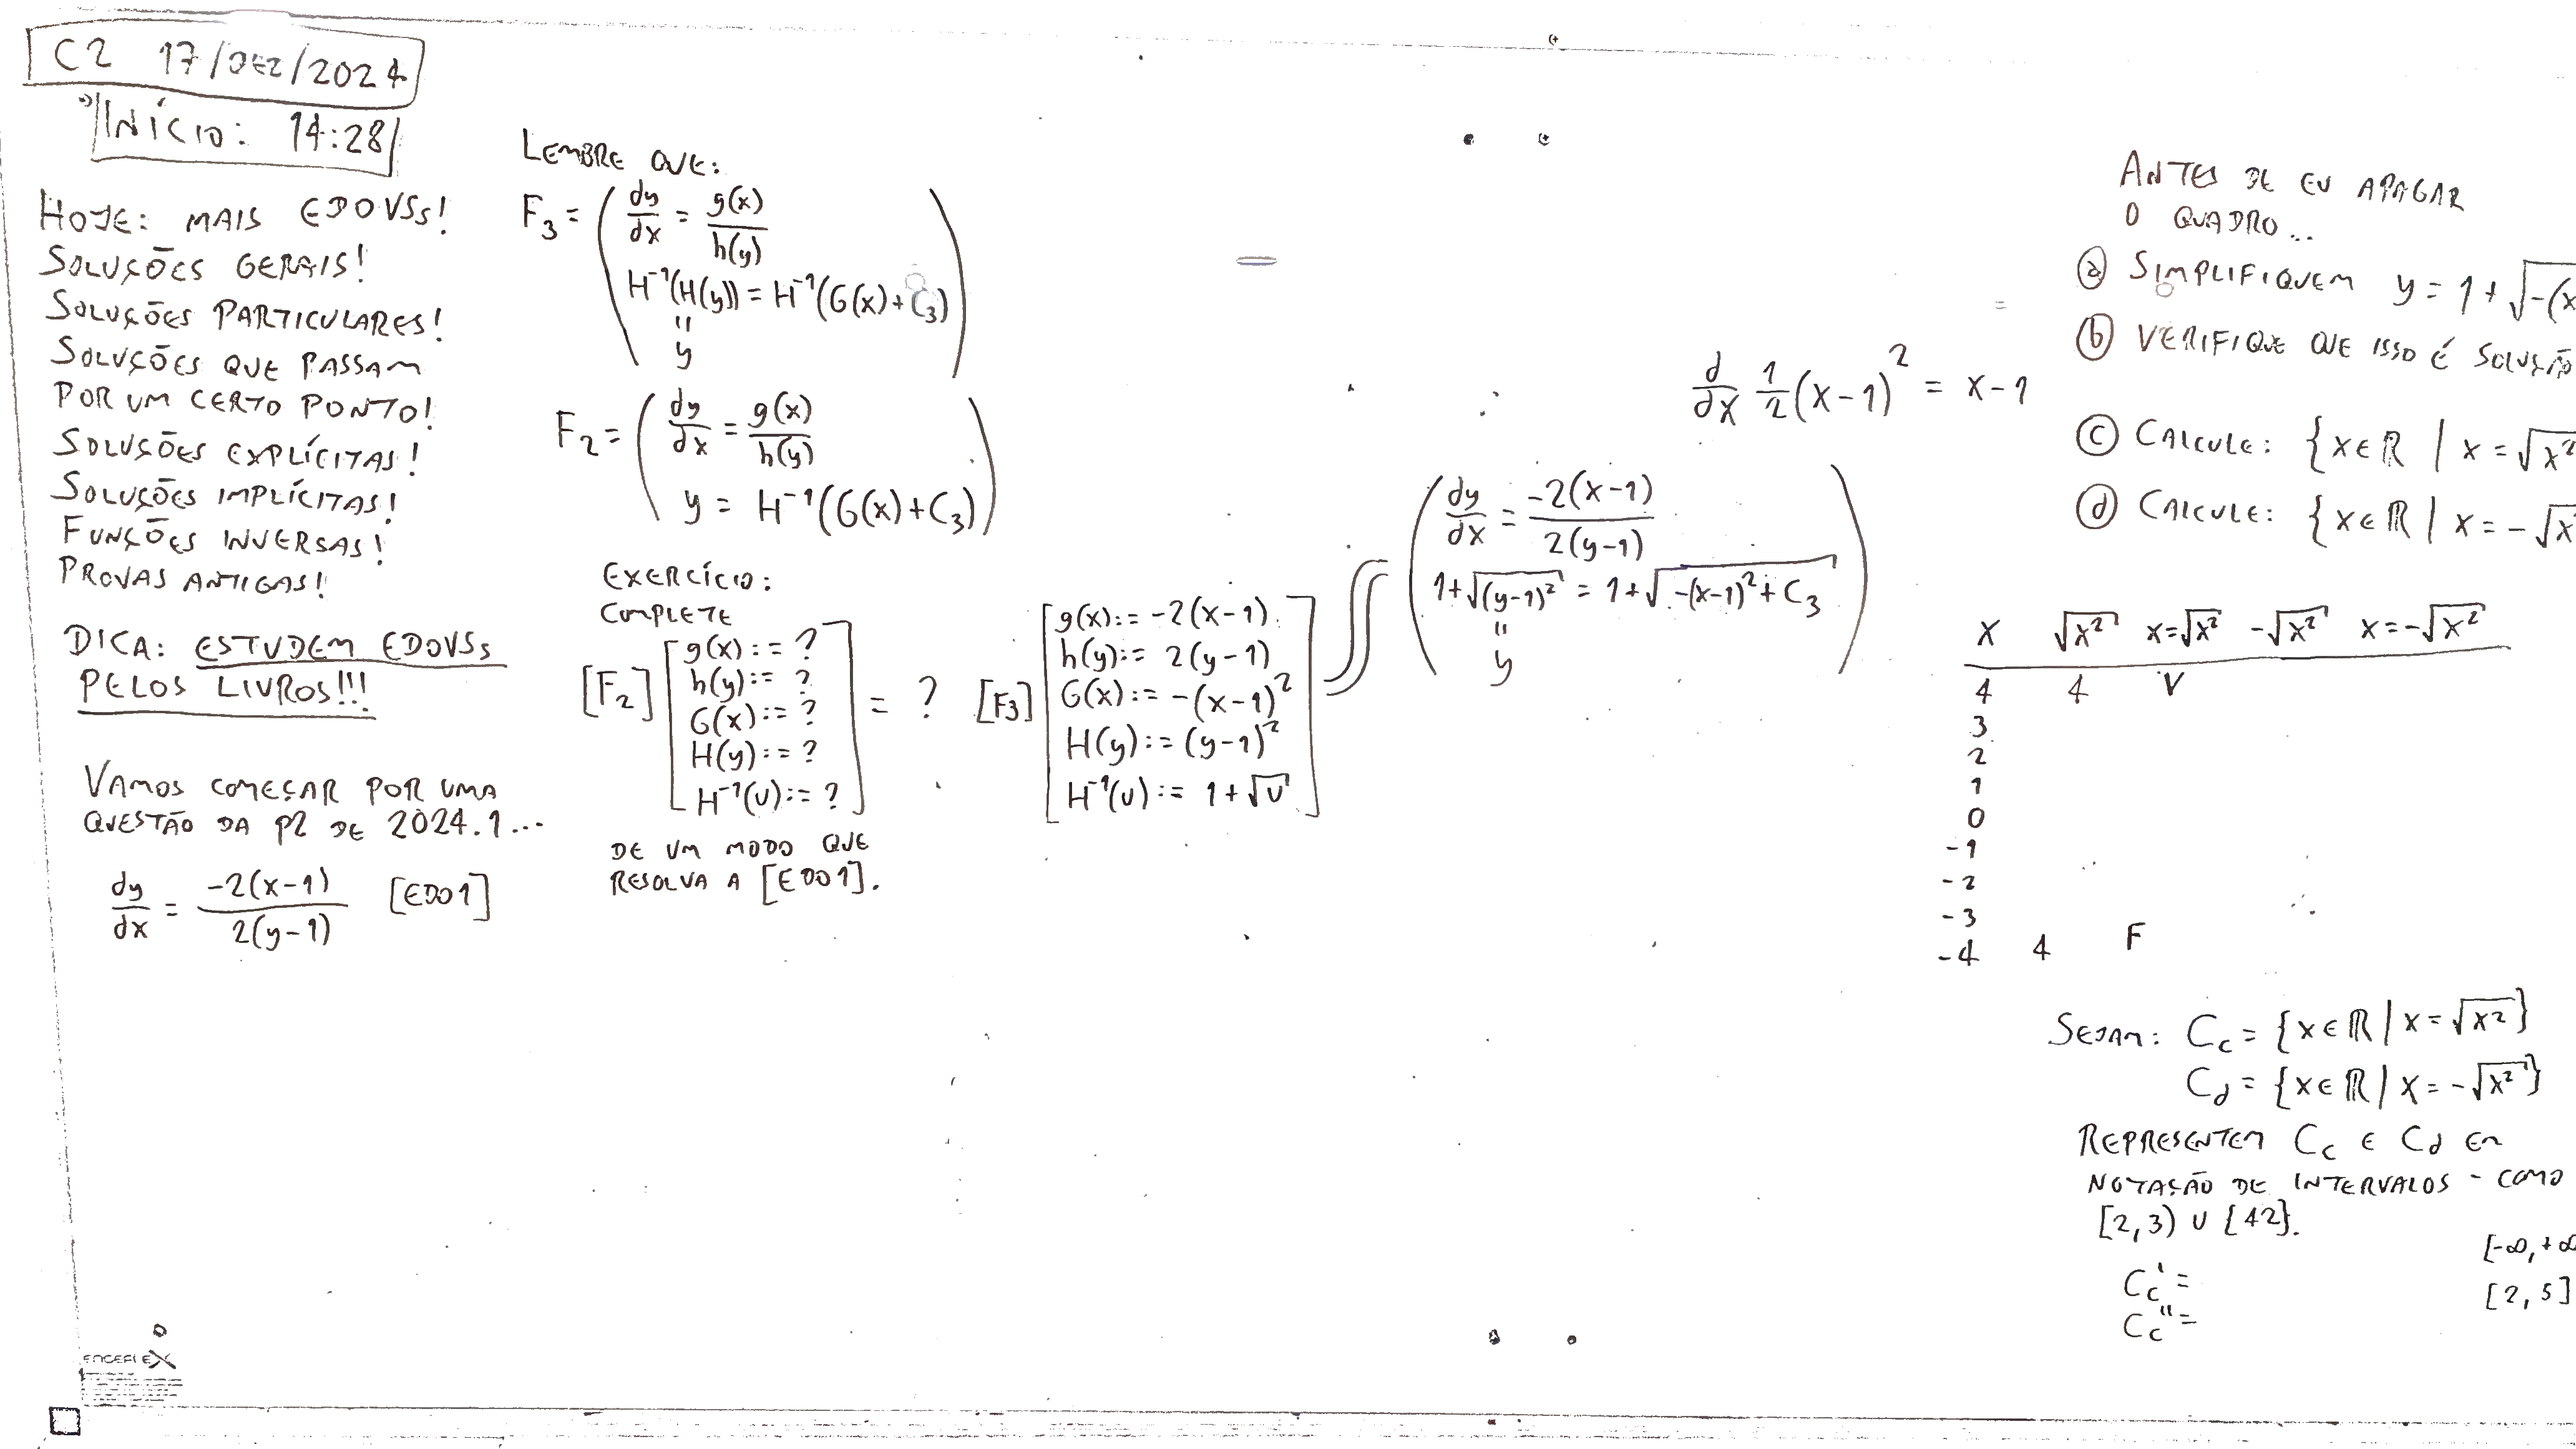 C2 17/DEZ/2024
INÍCIO: 14:28
HOJE: MAIS EDOVSs!
SOLUÇÕES GERAIS!
SOLUÇÕES PARTICULARES!
SOLUÇÕES QUE PASSAM
POR UM CERTO PONTO!
SOLUÇÕES EXPLÍCITAS!
SOLUÇÕES IMPLÍCITAS!
FUNÇÕES INVERSAS!
PROVAS ANTIGAS!
DICA: ESTUDEM EDOVSs
PELOS LIVROS!!!
VAMOS COMEÇAR POR UMA
QUESTÃO DA P2 DE 2024.1...
dy/dx = -2(x-1)/2(y-1) [EDO1]
LEMBRE QUE:
F₃ = ( dy/dx = g(x)/h(y)
H⁻¹(H(y)) = H⁻¹(G(x)+C₃)
"
y )
F₂ = ( dy/dx = g(x)/h(y)
y = H⁻¹(G(x)+C₃) )
EXERCÍCIO:
COMPLETE
[F₂] [ g(x) := ?
h(y) := ?
G(x) := ?
H(y) := ?
H⁻¹(u) := ? ] = ?
DE UM MODO QUE
RESOLVA A [EDO1].
[F₃] [ g(x) := -2(x-1)
h(y) := 2(y-1)
G(x) := -(x-1)²
H(y) := (y-1)²
H⁻¹(u) := 1+√u ]
=
( dy/dx = -2(x-1)/2(y-1)
1+√(y-1)² = 1+√-(x-1)²+C₃
"
y )
d/dx 1/2 (x-1)² = x-1
ANTES DE EU APAGAR
O QUADRO...
ⓐ SIMPLIFIQUEM y = 1+√-(x
ⓑ VERIFIQUE QUE ISSO É SOLUÇÃO
ⓒ CALCULE: {x∈ℝ | x=√x²
ⓓ CALCULE: {x∈ℝ | x=-√x
x √x² x=√x² -√x² x=-√x²
4 4 V
3
2
1
0
-1
-2
-3
-4 4 F
SEJAM: C_c = {x∈ℝ | x=√x²}
C_d = {x∈ℝ | x=-√x²}
REPRESENTEM C_c E C_d EM
NOTAÇÃO DE INTERVALOS - COMO
[2,3) ∪ {42}.
C_c' =
C_c'' =
[-∞,+∞
[2,5]